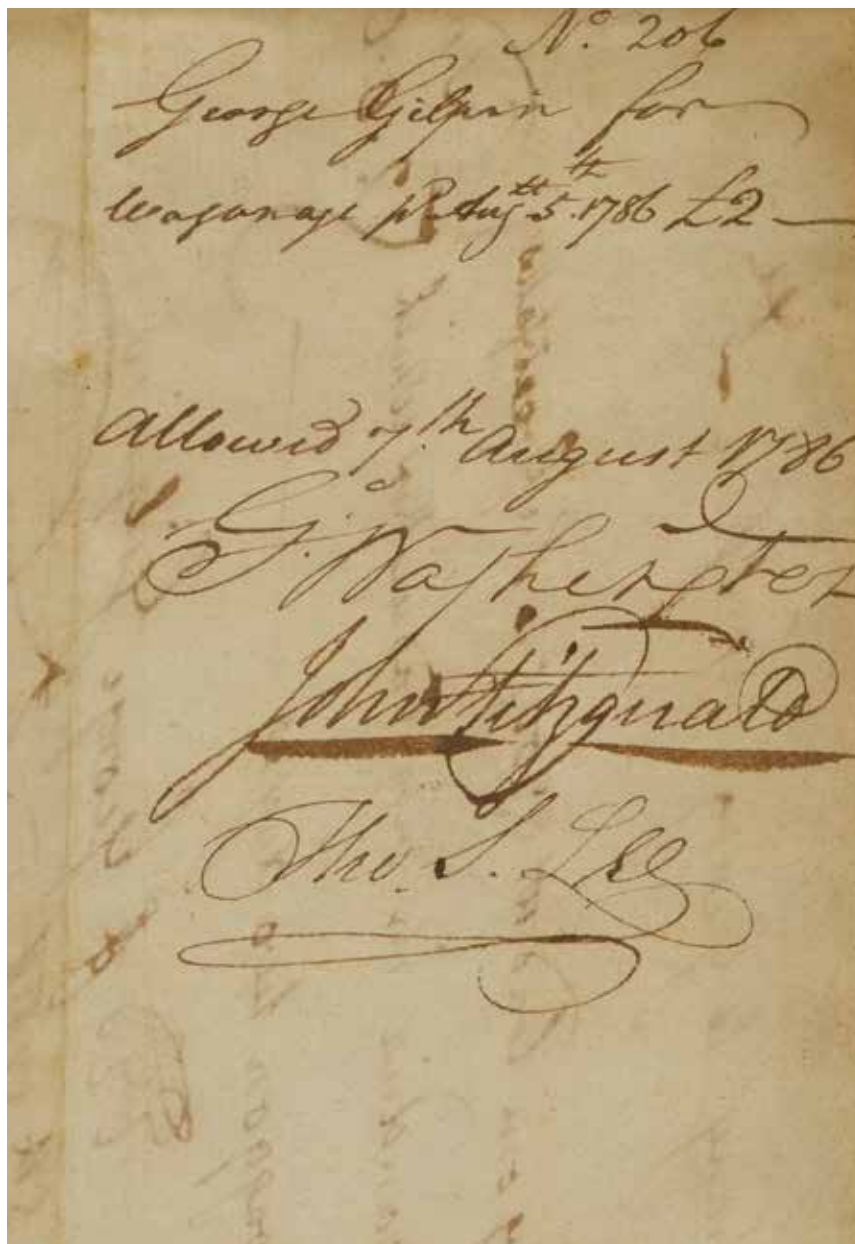 No. 206
George Gilpin for
Waganage pr Augtt 5th 1786 £2 —
allowed 7th August 1786
Go. Washington
John Fitzgerald
Tho. S. Lee